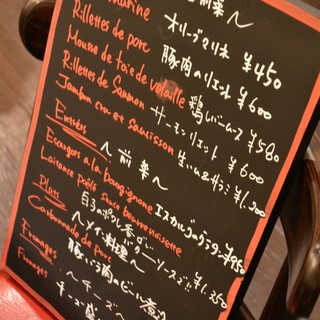 前菜〜
オリーブマリネ ¥450
Rillettes de porc
豚肉のリエット ¥600
Mousse de foie de volaille
鶏レバームース ¥580
Rillettes de Saumon
サーモンリエット ¥600
Jambon cru et saucisson
生ハム&サラミ ¥1,200
Entrées
〜前菜〜
Escargots a la bourgignone エスカルゴブルゴーニュ ¥950
Laitance poêlé sauce beurre noisette
白子のポワレ 焦がしバターソース ¥1,260
Plats
〜メイン料理〜
Carbonnade de porc
豚バラ肉のビール煮込
Fromages
〜チーズ〜
Fromages
チーズ盛